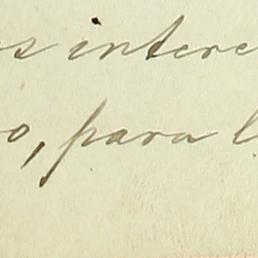 s intere
o, para l